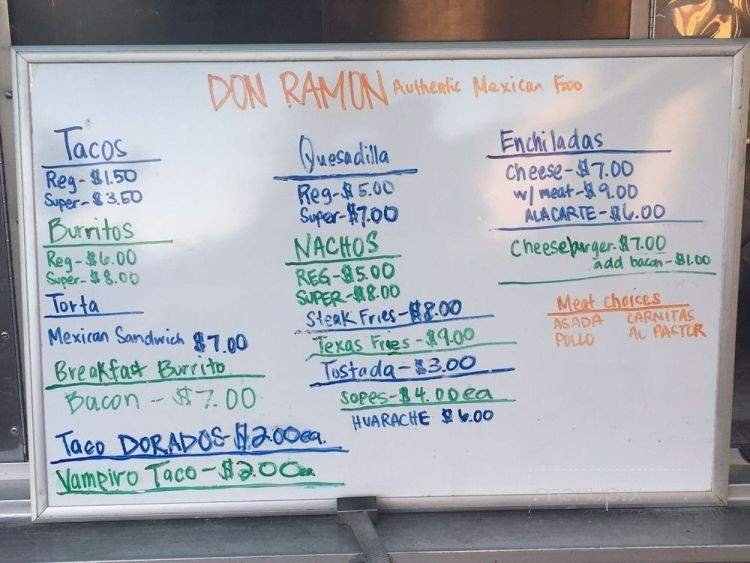 DON RAMON Authentic Mexican Food
Tacos
Reg-$1.50
Super-$3.50
Burritos
Reg-$6.00
Super-$8.00
Torta
Mexican Sandwich $7.00
Breakfast Burrito
Bacon - $7.00
Taco DORADOS-$2.00ea.
Vampiro Taco-$2.00ea
Quesadilla
Reg-$5.00
Super-$7.00
NACHOS
REG-$5.00
SUPER-$8.00
Steak Fries-$8.00
Texas Fries-$9.00
Tostada-$3.00
Sopes-$4.00ea
HUARACHE $6.00
Enchiladas
Cheese-$7.00
w/meat-$9.00
ALACARTE-$6.00
Cheeseburger-$7.00
add bacon-$1.00
Meat Choices
ASADA CARNITAS
POLLO AL PASTOR